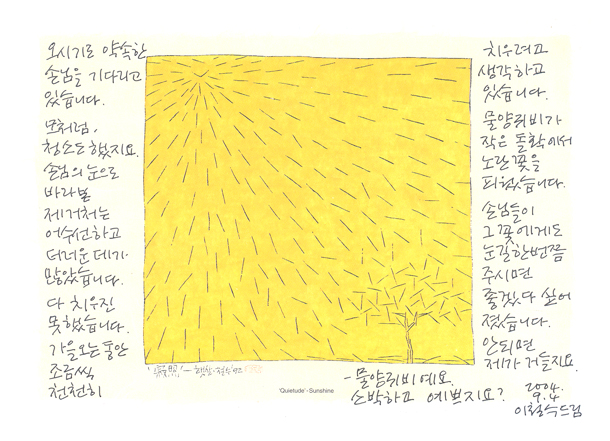 오시기로 약속한
손님을 기다리고
있습니다.
모처럼,
청소도 했지요.
손님의 눈으로
바라볼
제 거처는
어수선하고
더러운 데가
많았습니다.
다 치우진
못했습니다.
가을 오는 동안
조금씩
천천히
치우려고
생각하고
있습니다.
물양귀비가
작은 돌확에서
노란 꽃을
피웠습니다.
손님들이
그 꽃에게도
눈길 한번쯤
주시면
좋겠다 싶어
졌습니다.
안되면
제가 거들지요.
'Quietude' - Sunshine
- 물양귀비예요.
소박하고 예쁘지요?
2004.
9.4
이철수드림